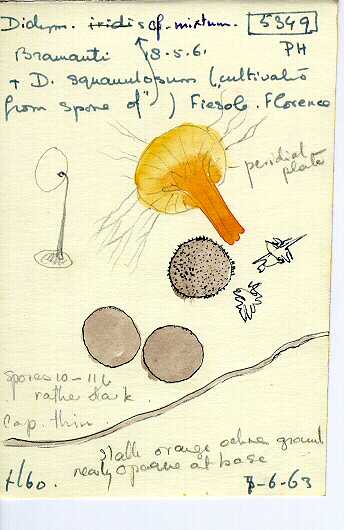 Didym. iridis cf. mixtum. 5349
Bramanti 18.5.6. PH
+ D. squamulosum ("cultivato
from spore of" ) Fiesole. Florence
peridial
plate
spores 10-11µ
rather dark.
cap. thin
stalk orange ochre ground
nearly opaque at base
x160. 7-6-63